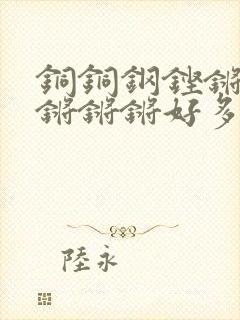 銅銅鋼鏗鏘
鏘鏘鏘好多
陸永